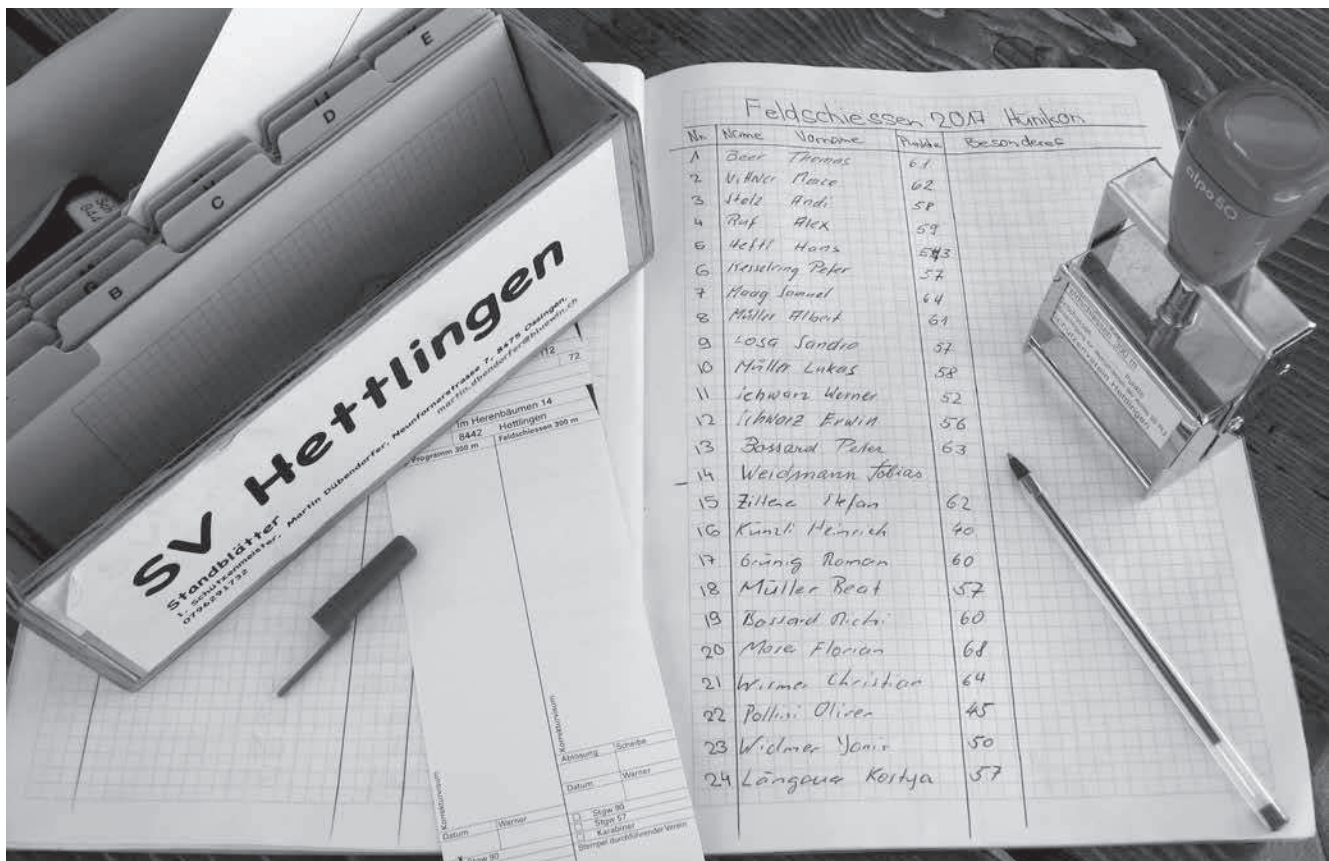 E
D
C
B
SV Hettlingen
Standblätter
1. Schützenmeister, Martin Dübendorfer, Neunfornerstrasse 7, 8475 Ossingen,
0796291732 martin.dbendorfer@bluewin.ch
72
Im Herenbäumen 14
8442 Hettlingen
Programm 300 m Feldschiessen 300 m
Korrekturraum
Korrekturraum
Ablösung Scheibe
Datum Warner
Datum Warner
Stgw 90
Stgw 57
Karabiner
Stempel durchführender Verein
X Stgw 90
Feldschiessen 2017 Hünikon
Nr. Name Vorname Punkte Besonderes
1 Beer Thomas 61
2 Marco 62
3 Stolz Andi 58
4 Ruf Alex 59
5 Hefti Hans
6 Kesselring Peter 57
7 Maag Samuel 64
8 Müller Albert 61
9 Losa Sandro 57
10 Müller Lukas 58
11 Schwarz Werner 52
12 Schwarz Erwin 56
13 Bossard Peter 63
14 Weidmann Tobias
15 Stefan 62
16 Künzli Heinrich 40
17 Grünig Roman 60
18 Müller Beat 57
19 Bossard Michi 60
20 Moser Florian 68
21 Wismer Christian 64
22 Oliver 45
23 Widmer 50
24 Kostya 57
alpo 50
Schützenverein Hettlingen